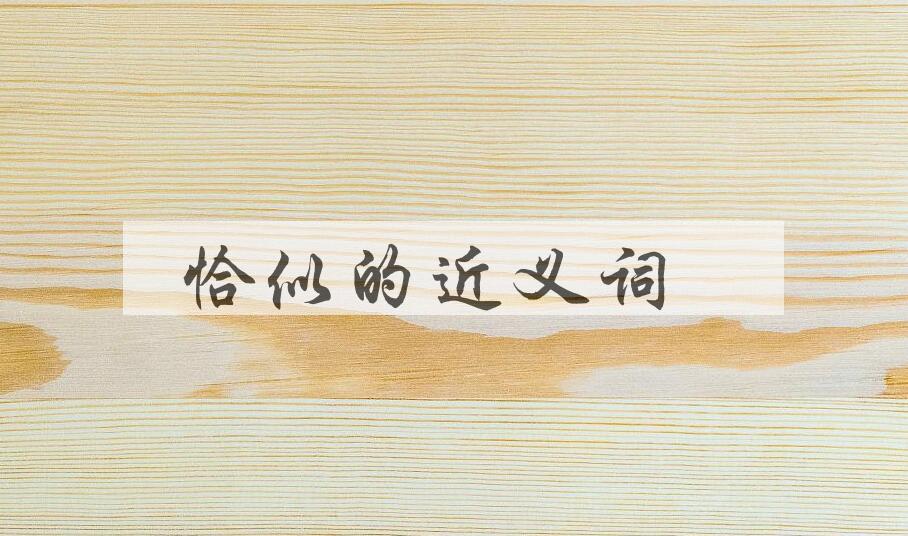 恰似的近义词